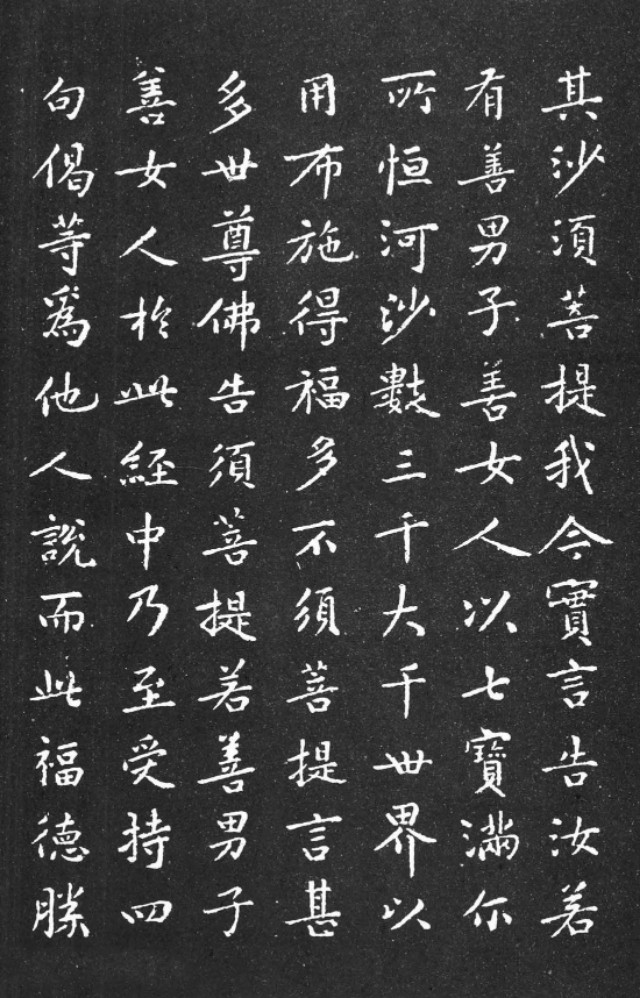 其沙須菩提我今實言告汝若
有善男子善女人以七寶滿尒
所恒河沙數三千大千世界以
用布施得福多不須菩提言甚
多世尊佛告須菩提若善男子
善女人於此經中乃至受持四
句偈等爲他人說而此福德勝